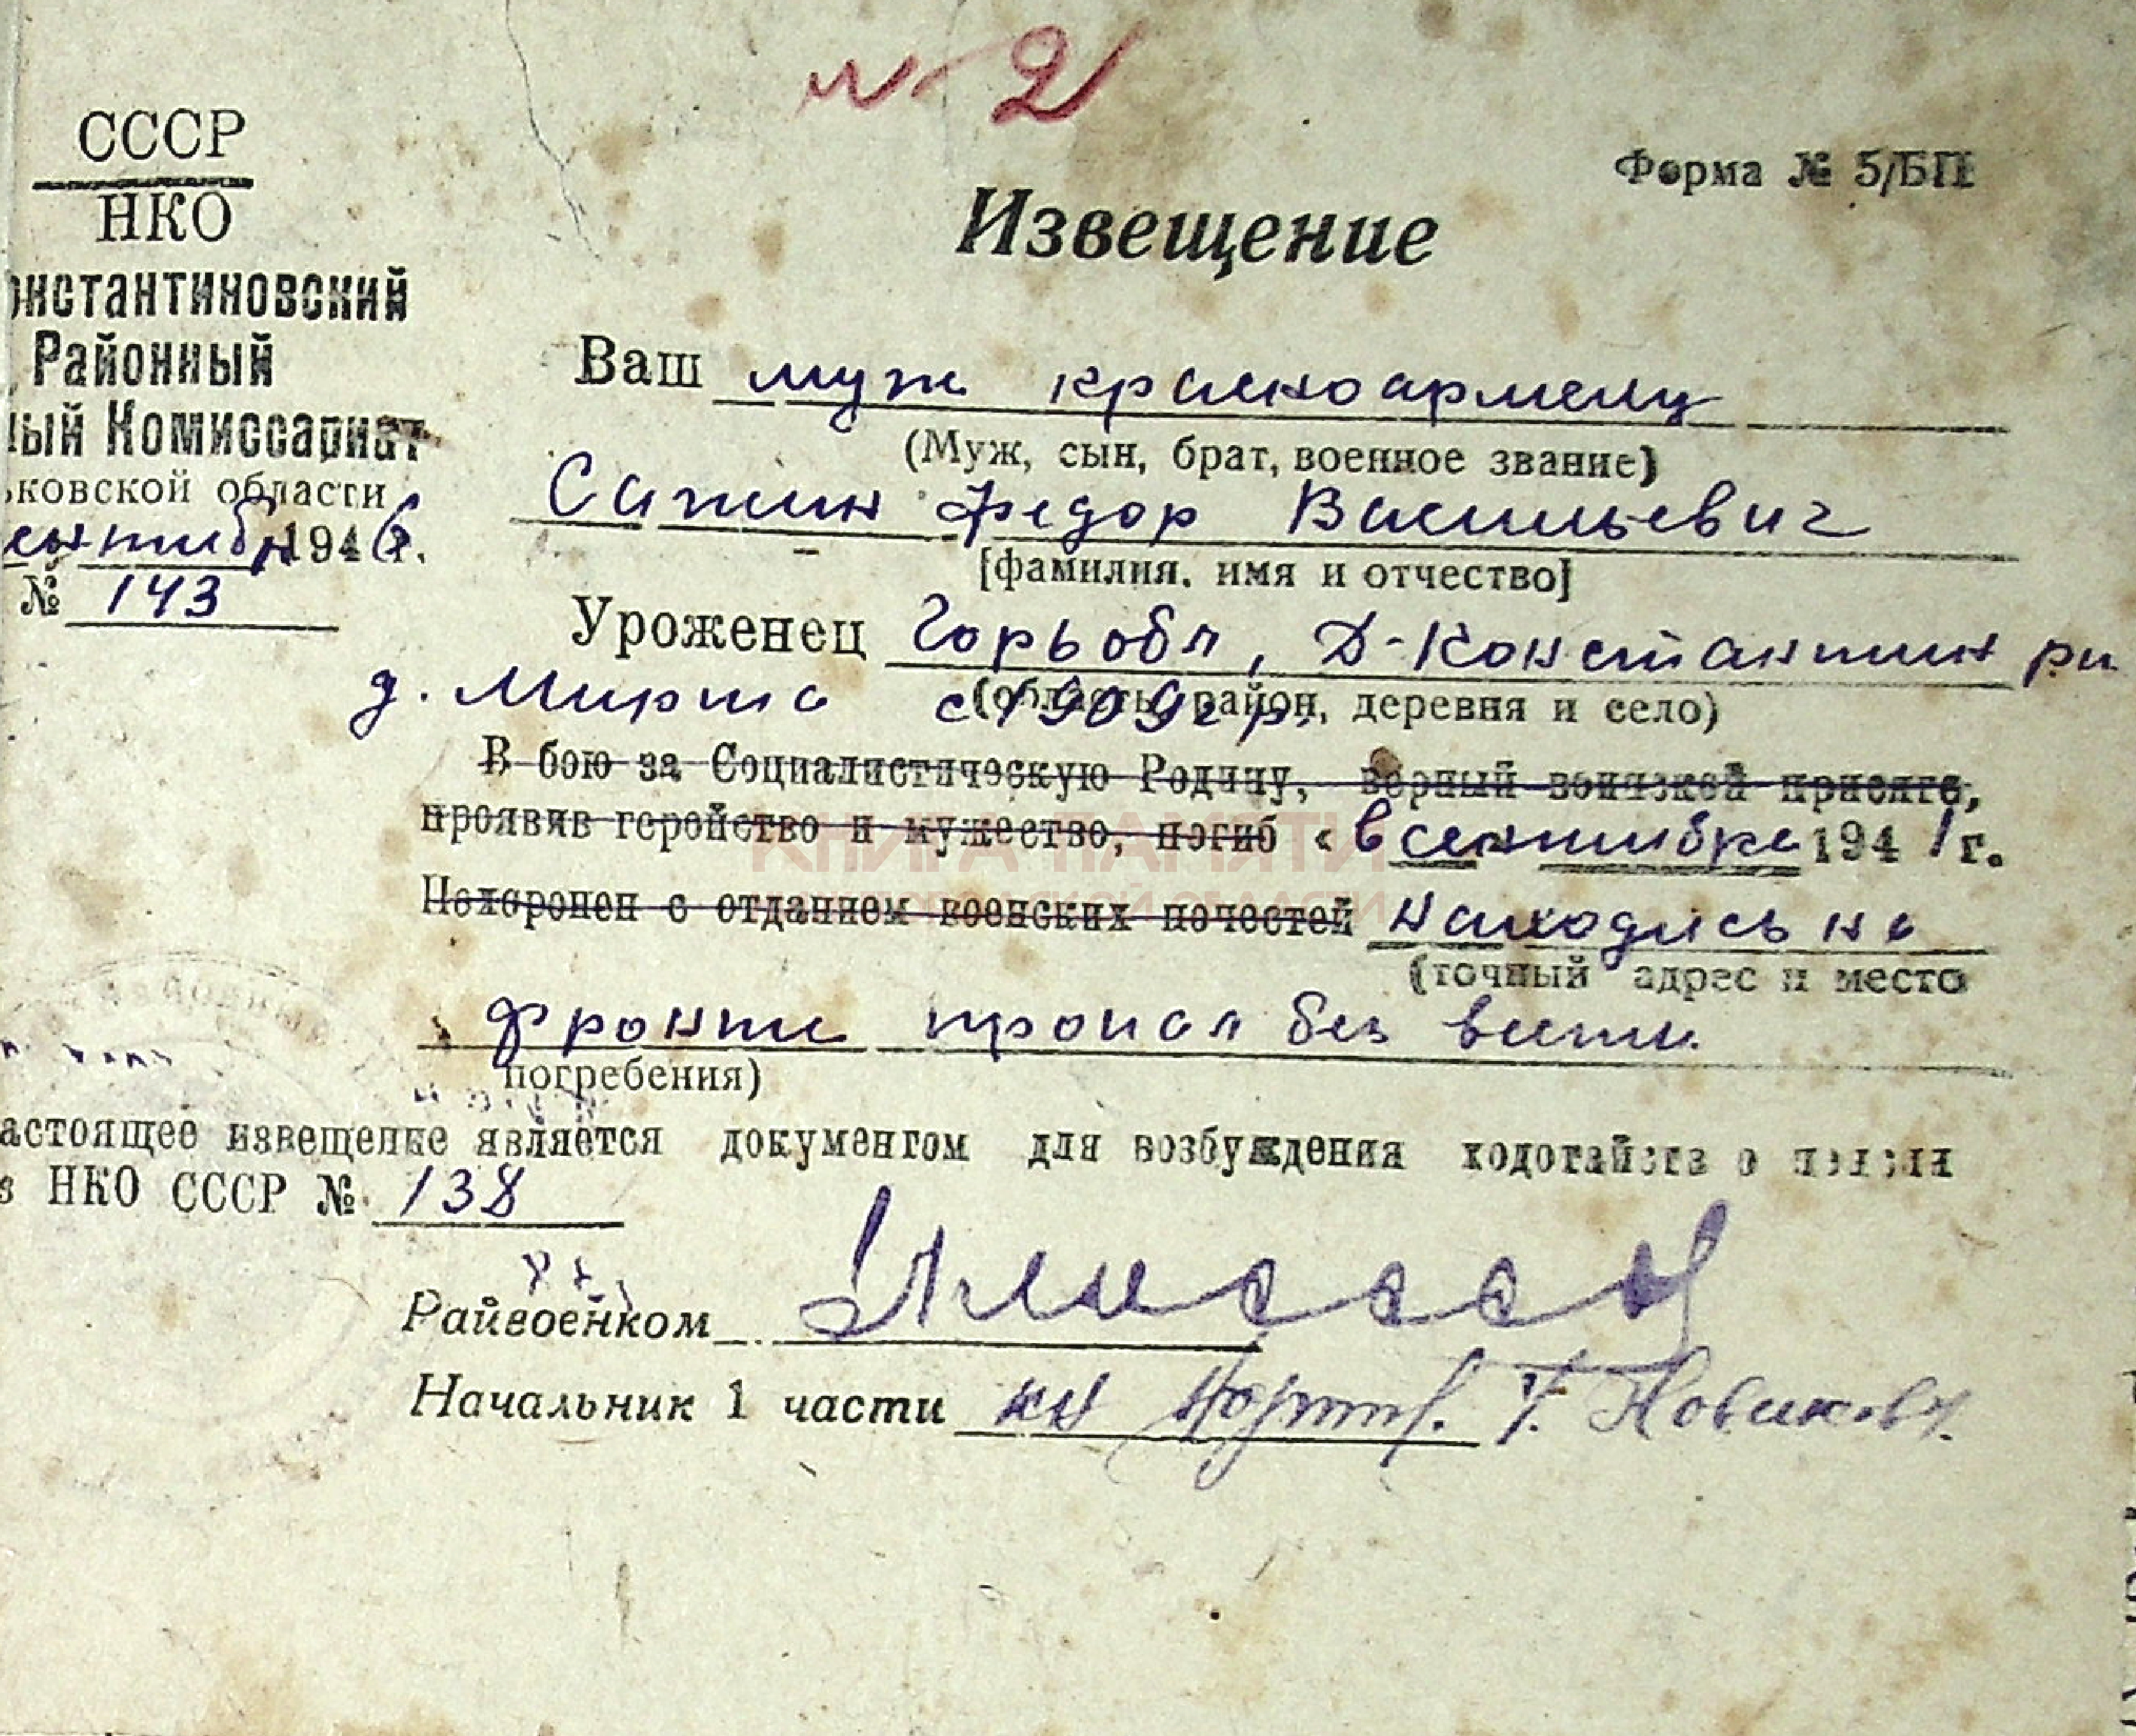 № 2
СССР
НКО
онстантиновский
Районный
ный Комиссариат
ьковской области
сентября 1946 г.
№ 143
Форма № 5/БП
Извещение
Ваш муж красноармеец
(Муж, сын, брат, военное звание)
Федор Васильевич
[фамилия, имя и отчество]
Уроженец Горьк обл, Д-Константин р-н
д. с 1909 г р.
(область, район, деревня и село)
В бою за Социалистическую Родину, верный воинской присяге,
проявив геройство и мужество, погиб « в сентябре 1941 г.
Похоронен с отданием военских почестей находясь на
(точный адрес и место
фронте пропал без вести
погребения)
астоящее извещение является документом для возбуждения ходотайств о пенсии
з НКО СССР № 138
Райвоенком
Начальник 1 части Новиков
КНИГА ПАМЯТИ
НИЖЕГОРОДСКОЙ ОБЛАСТИ